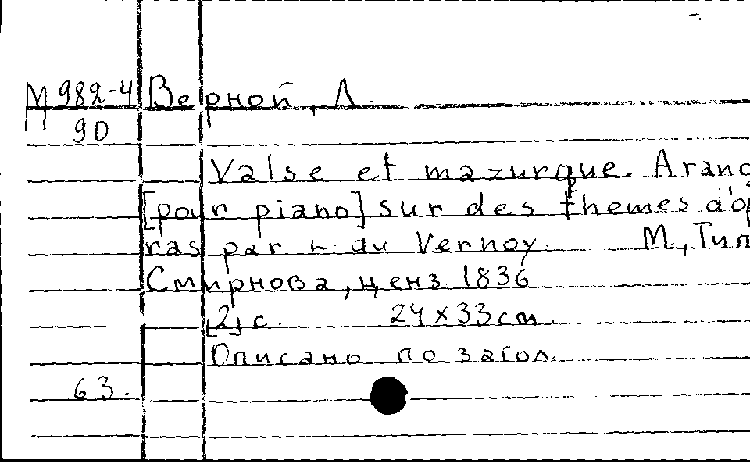 М 982-4 Верной, Л.
90
Valse et mazurque. Arang
[pour piano] sur des themes d'op
ras par L. du Vernoy. М., Тип
Смирнова, ценз 1836
[2] с. 24x33 см.
Описано по загол.
63.